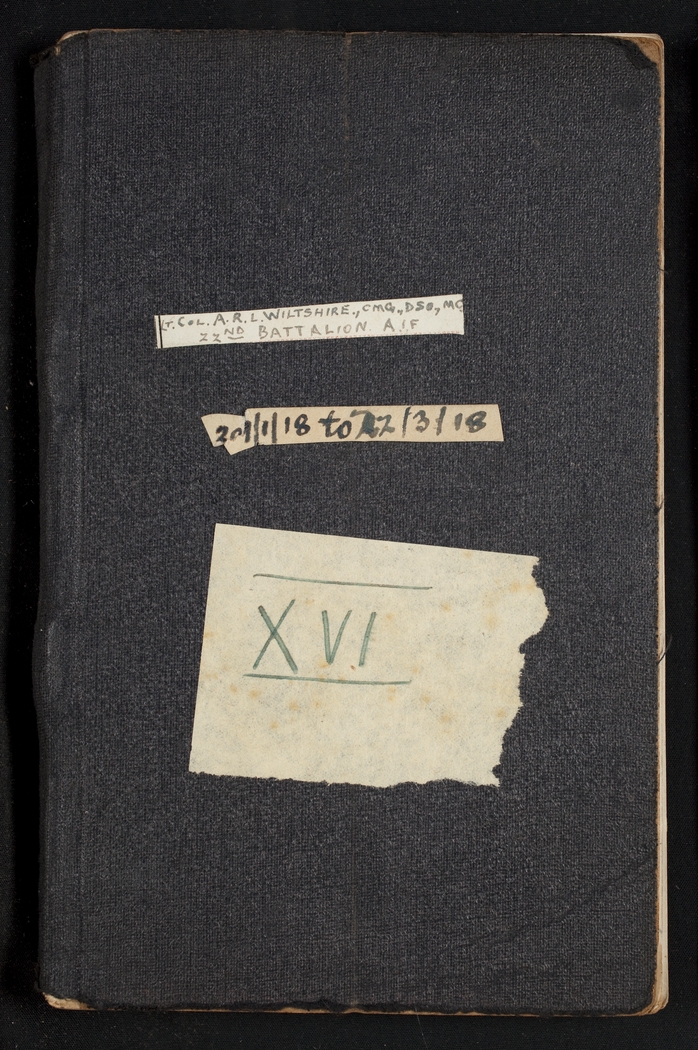 LT. COL. A.R.L. WILTSHIRE., CMG., DSO, MC
22ND BATTALION A.I.F
/1/18 to 22/3/18
XVI